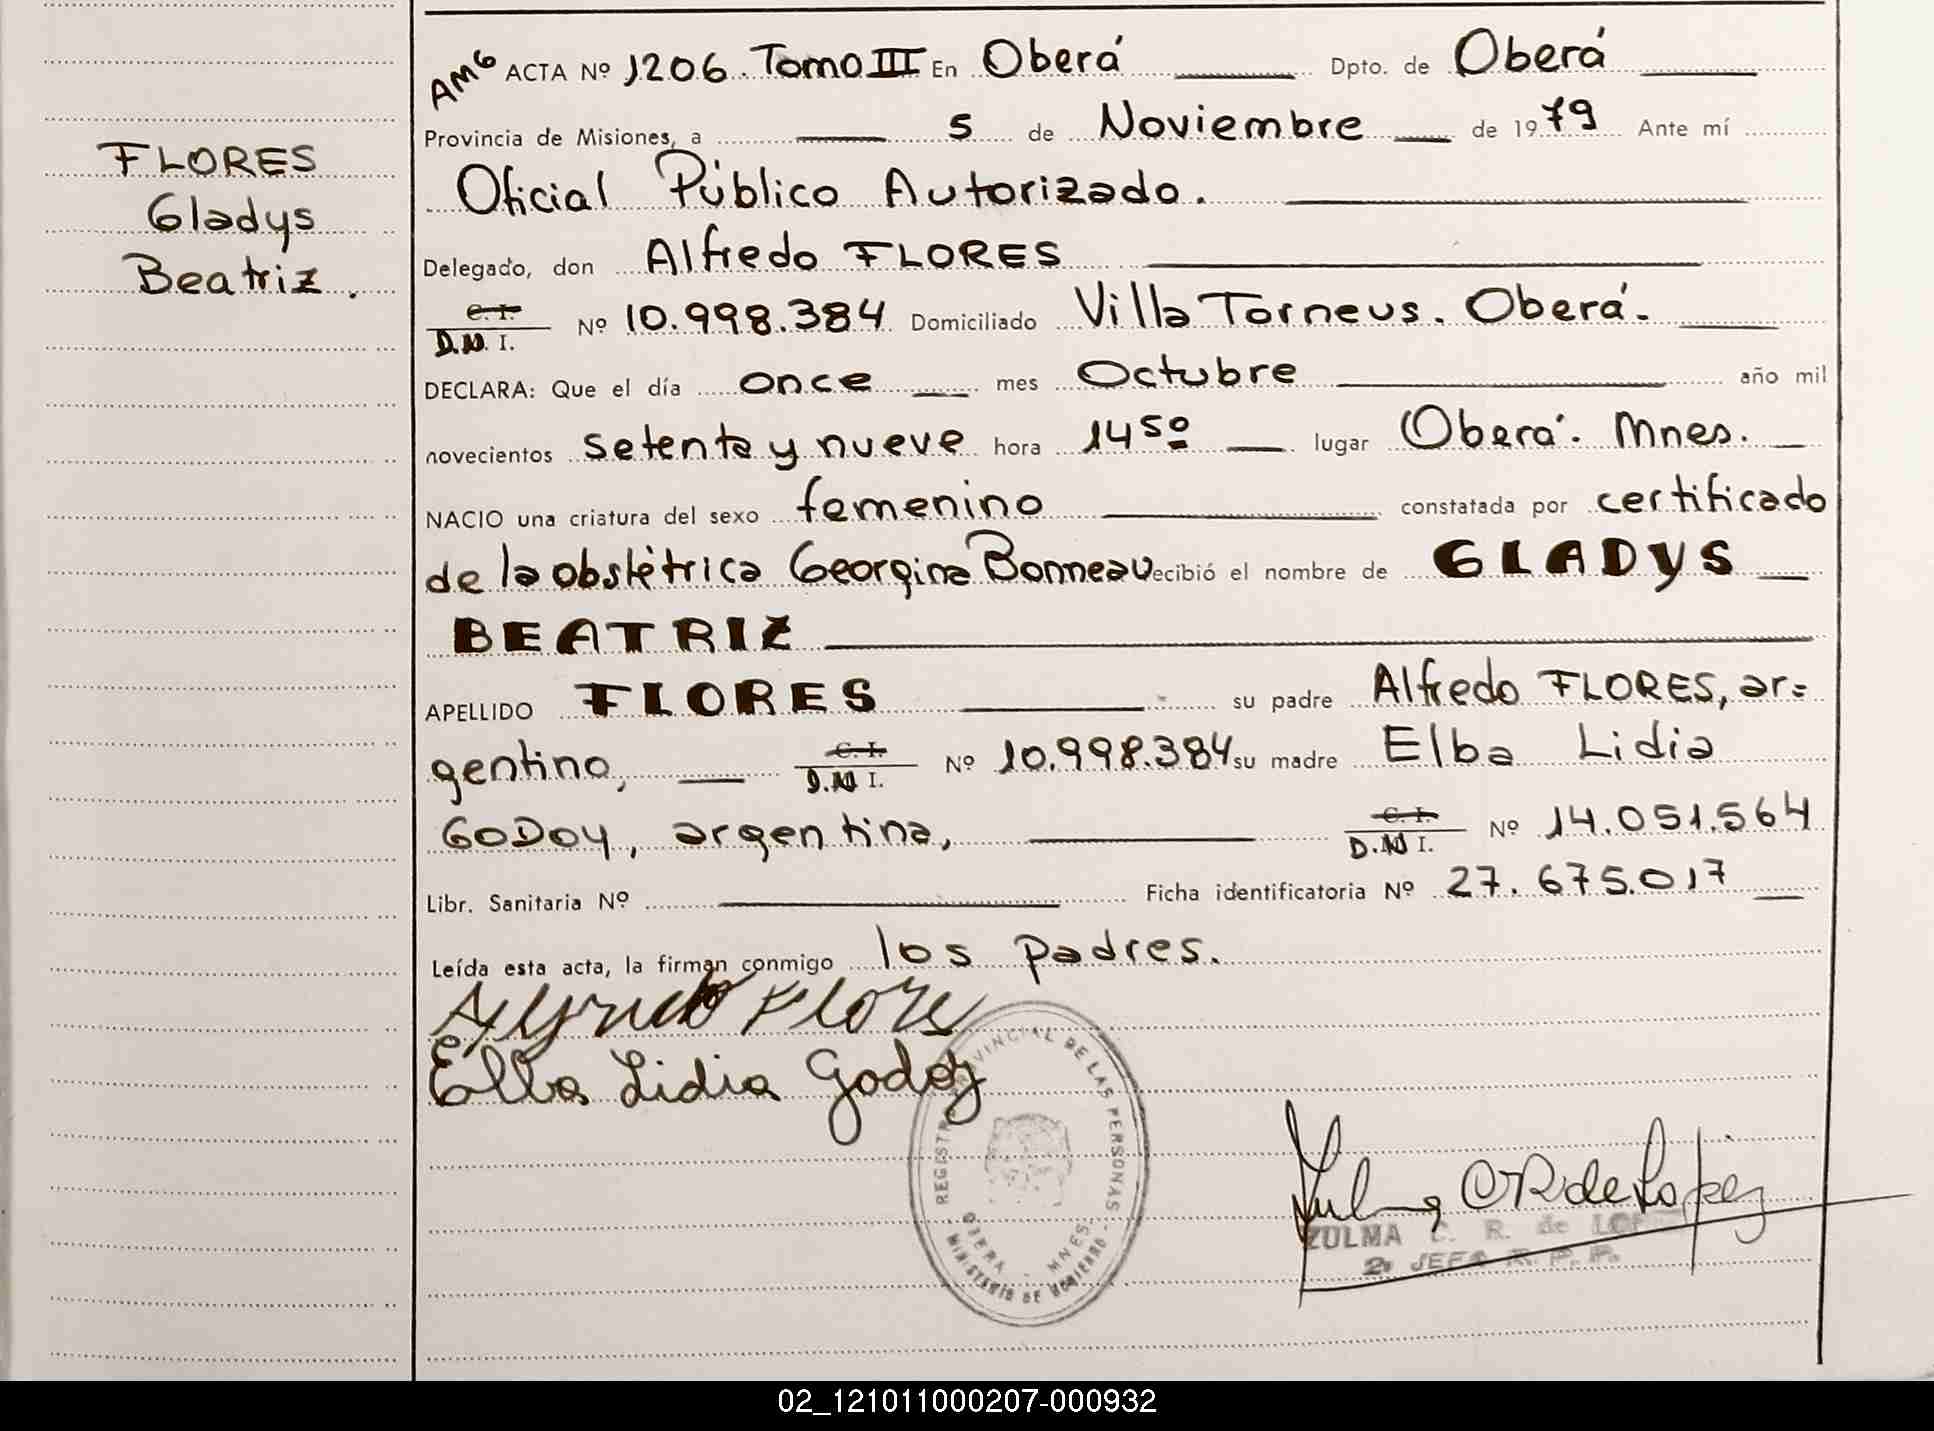 FLORES
Gladys
Beatriz.
AMG ACTA Nº 1206. Tomo III En Oberá Dpto. de Oberá
Provincia de Misiones, a 5 de Noviembre de 1979 Ante mí
Oficial Público Autorizado.
Delegado, don Alfredo FLORES
C. I.
D.N. I. Nº 10.998.384 Domiciliado Villa Torneus. Oberá.
DECLARA: Que el día once mes Octubre año mil
novecientos setenta y nueve hora 14 50 lugar Oberá. Mnes.
NACIO una criatura del sexo femenino constatada por certificado
de la obstétrica Georgina Bonneau ecibió el nombre de GLADYS
BEATRIZ
APELLIDO FLORES su padre Alfredo FLORES, ar=
gentino, C. I.
D.N I. Nº 10.998.384 su madre Elba Lidia
GODOY, argentina, C. I.
D.N I. Nº 14.051.564
Libr. Sanitaria Nº Ficha identificatoria Nº 27.675.017
Leída esta acta, la firman conmigo los padres.
Alfredo Flores
Elba Lidia Godoy
REGISTRO PROVINCIAL DE LAS PERSONAS
OBERA - MNES.
MINISTERIO DE GOBIERNO
Zulma C R de Lopez
ZULMA C. R. de LOPEZ
2ª JEFA R. P. P.
02_121011000207-000932